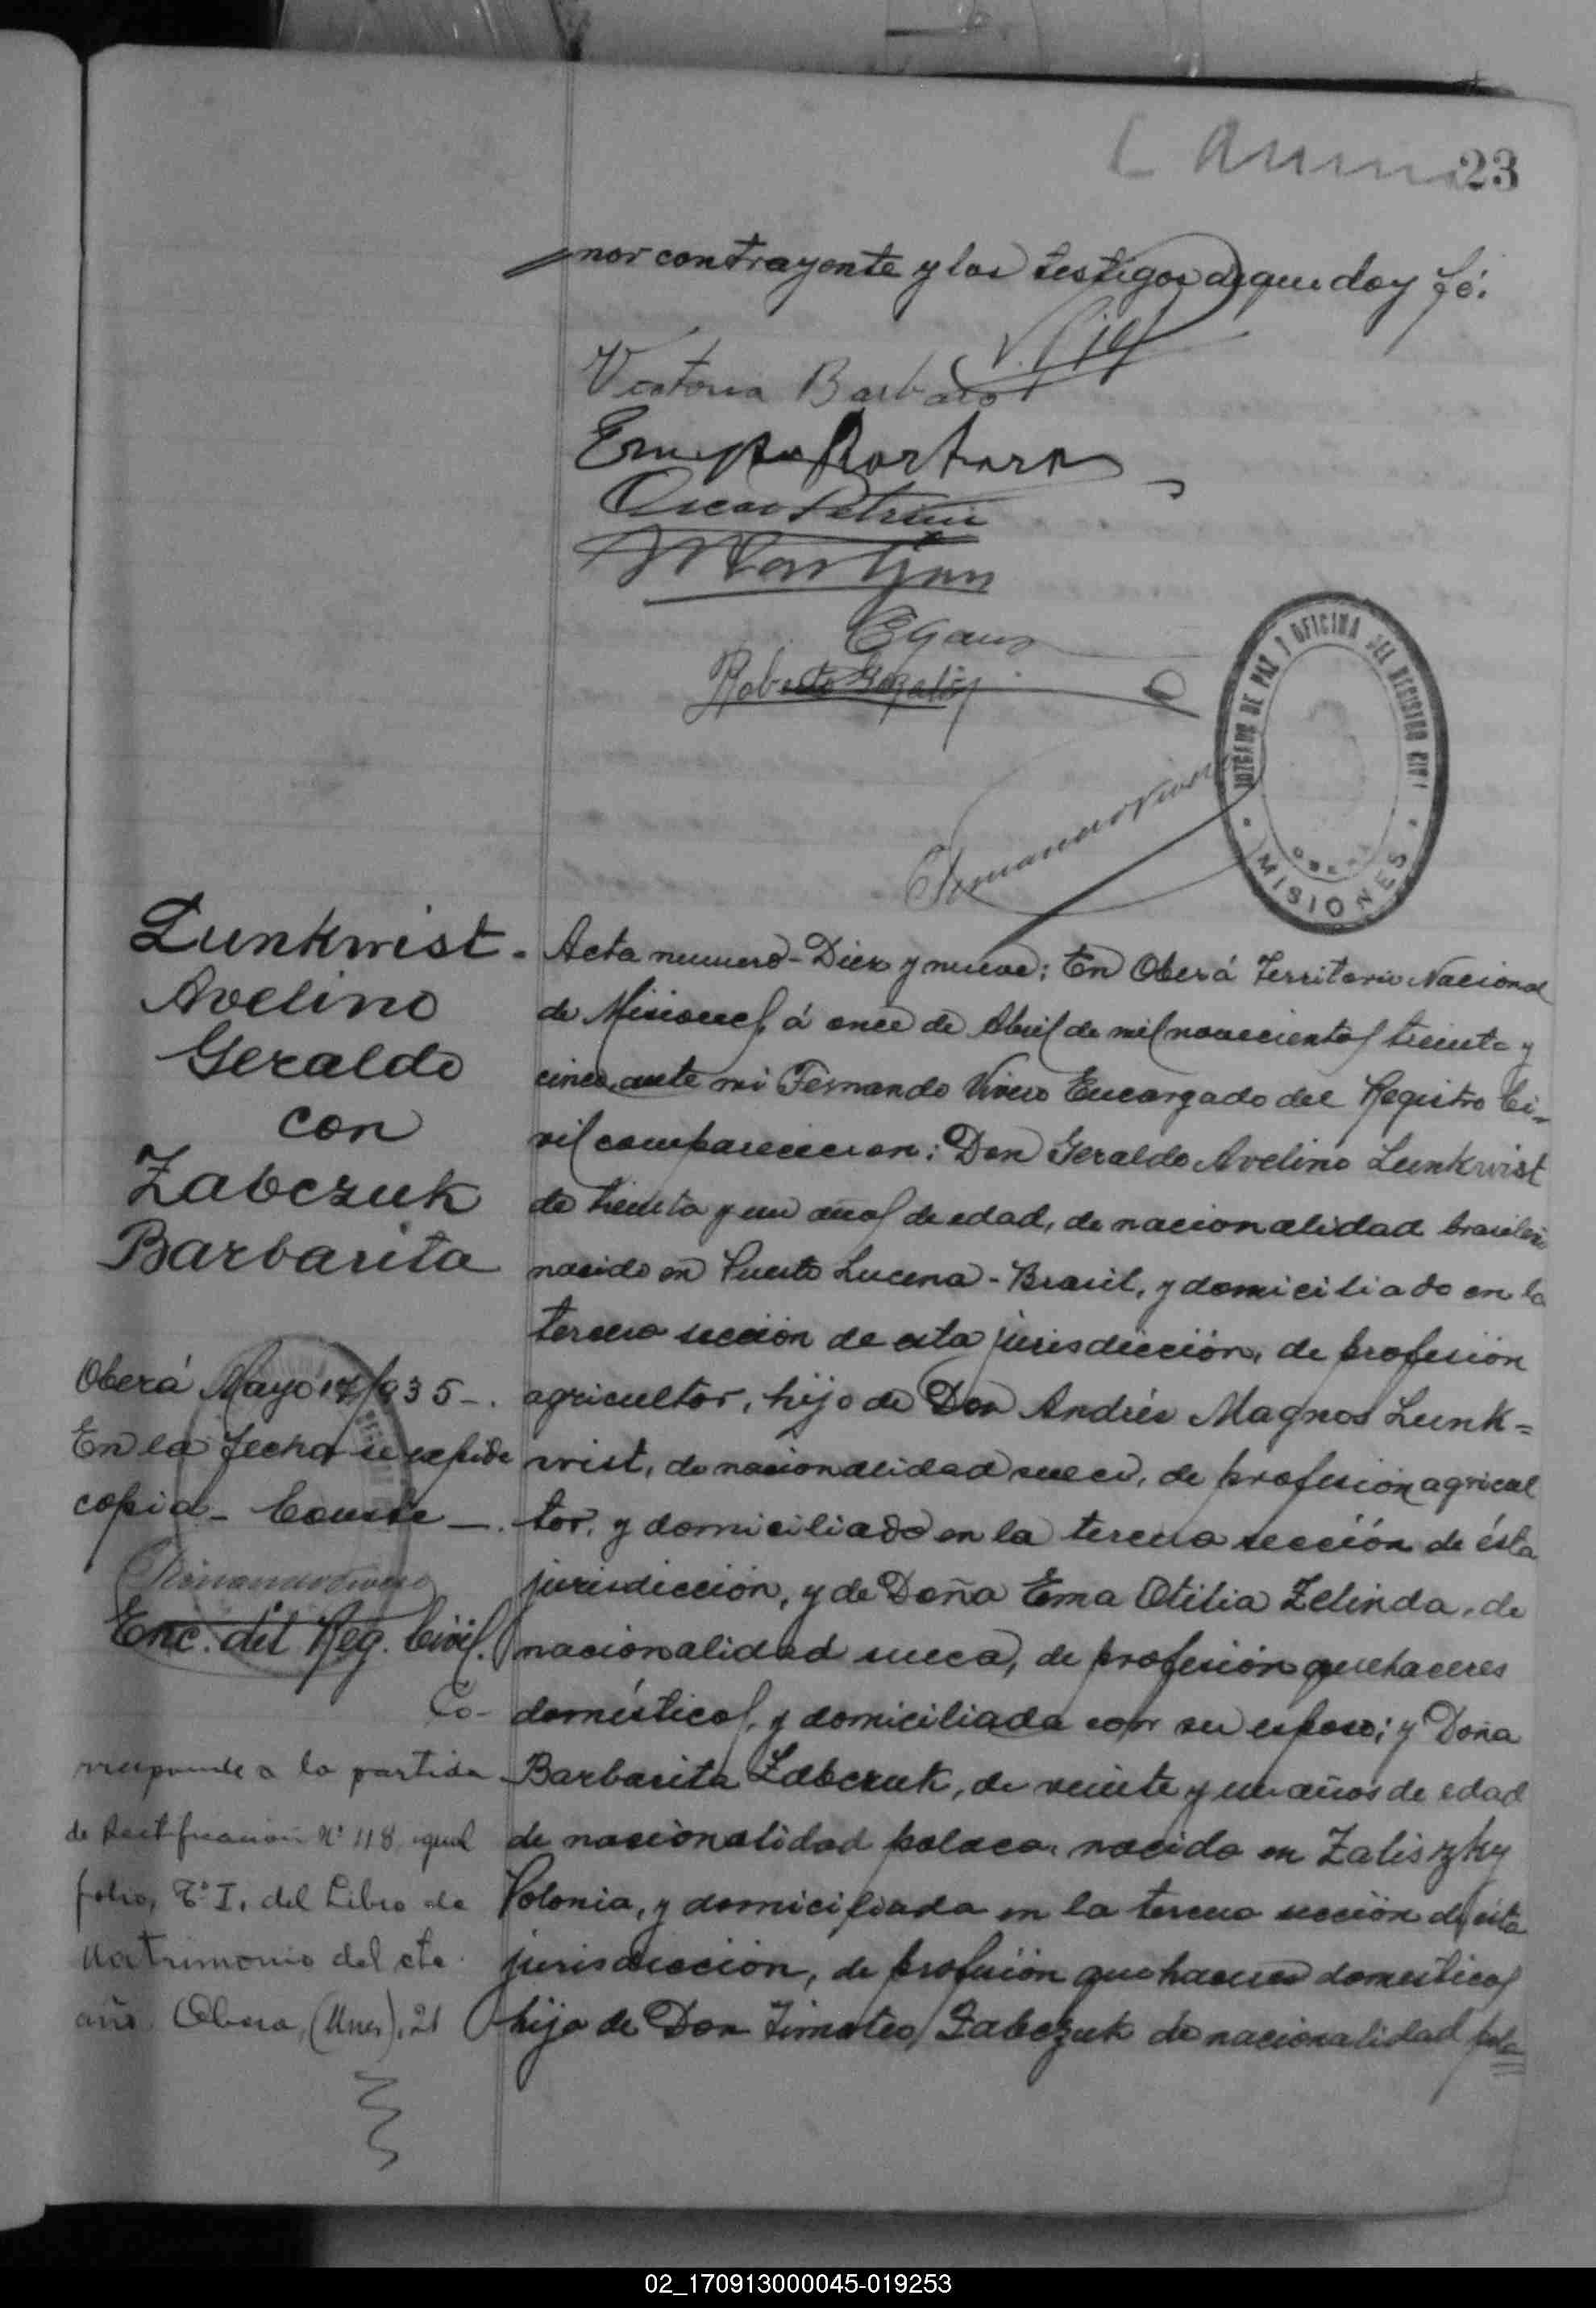 23
nor contrayente y los testigos de que doy fé.
Victoria Barbaro
Oscar Petruii
Roberto Gozalo
JUZGADO DE PAZ Y OFICINA DEL REGISTRO CIVIL
OBERA
MISIONES
Fernando Vivero
Lunkwist
Avelino
Geraldo
con
Zabczuk
Barbarita
Acta numero Diez y nueve: En Oberá Territorio Nacional
de Misiones, á once de Abril de mil novecientos treinta y
cinco, ante mi Fernando Vivero Encargado del Registro Ci-
vil comparecieron: Don Geraldo Avelino Lunkwist
de treinta y un años de edad, de nacionalidad brasileña
nacido en Puerto Lucena - Brasil, y domiciliado en la
tercera sección de esta jurisdicción, de profesión
agricultor, hijo de Don Andrés Magnos Lunk=
wist, de nacionalidad sueca, de profesión agricul
tor, y domiciliado en la tercera sección de ésta
jurisdicción, y de Doña Ema Otilia Zelinda, de
nacionalidad sueca, de profesión quehaceres
domésticos, y domiciliada con su esposo; y Doña
Barbarita Zabczuk, de veinte y un años de edad
de nacionalidad polaca, nacida en Zaliszky
Polonia, y domiciliada en la tercera sección de esta
jurisdicción, de profesión quehaceres domesticos
hija de Don Timoteo Zabczuk de nacionalidad pola
Oberá Mayo 17/935 -.
En la fecha se expide
copia - Conste -.
Fernando Vivero
Enc. del Reg. Civil.
Co-
rresponde a la partida
de Rectificación Nº 118 igual
folio, Tº I. del Libro de
Matrimonio del cte.
año. Obera, (Mnes), 21
02_170913000045-019253